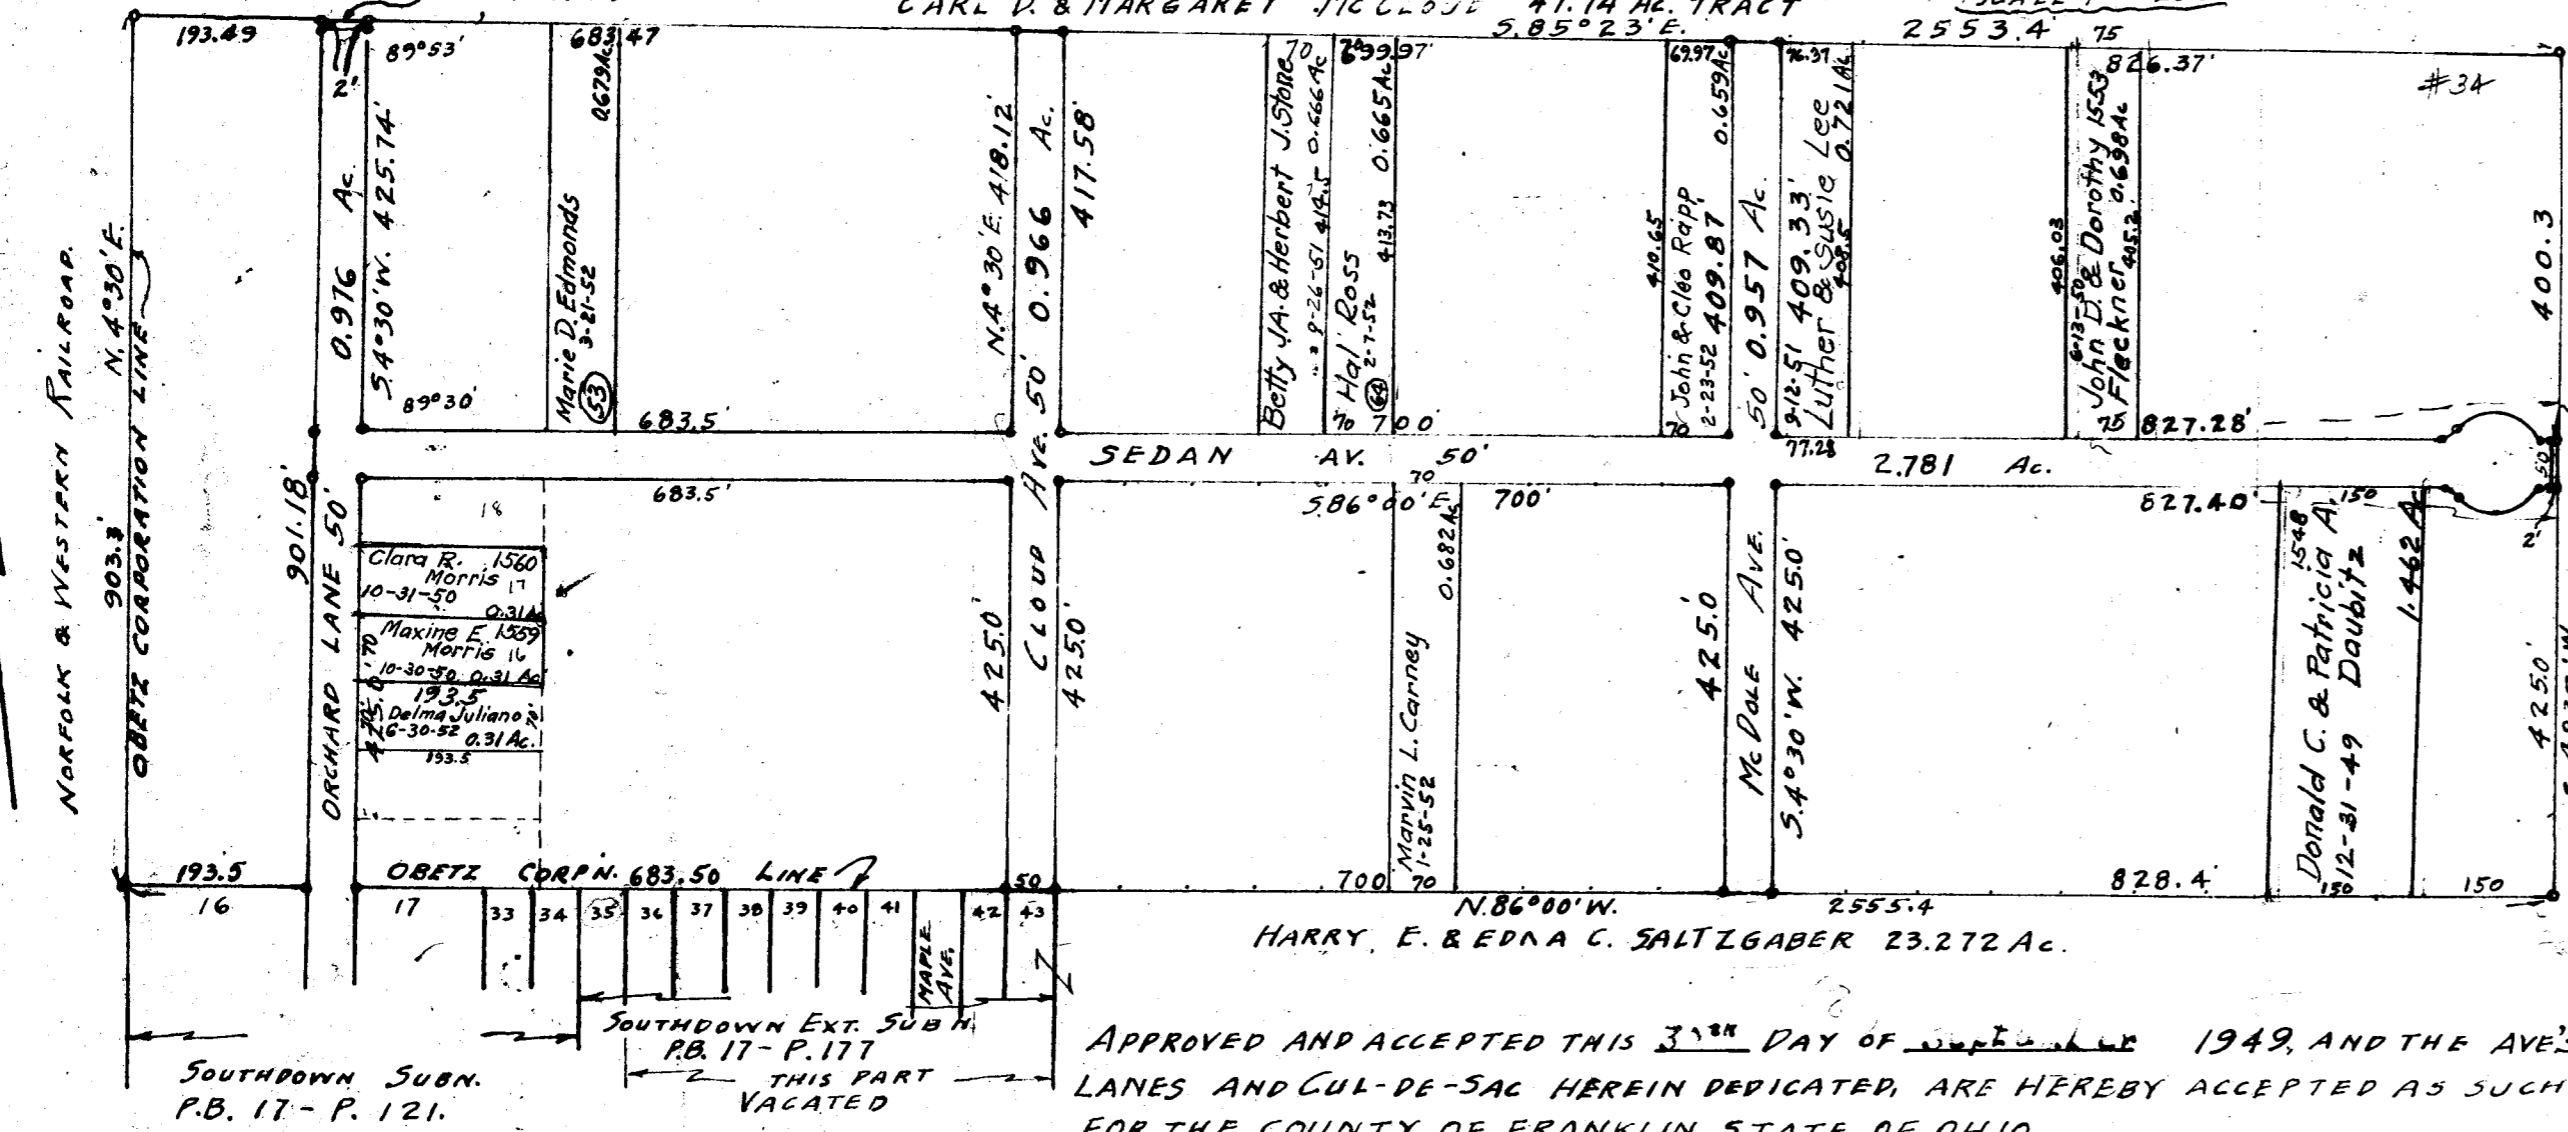 CARL D. & MARGARET McCLOUD 41.14 AC. TRACT
S.85°23'E.
2553.4
193.49
89°53'
2'
683.47
0.679Ac.
70
699.97'
69.97
76.37
75
826.37'
#34
NORFOLK & WESTERN RAILROAD.
N.4°30'E.
903.3'
OBETZ CORPORATION LINE
0.976 Ac.
S.4°30'W. 425.74'
89°30'
Marie D. Edmonds
3-21-52
53
683.5'
N.4°30'E. 418.12'
50' 0.966 Ac.
417.58'
Betty J.A. & Herbert J. Stone
9-26-51 414.5 0.666Ac
Hal Ross
64 2-7-52 413.73 0.665Ac
70
700'
410.65
John & Cleo Rapp
2-23-52 409.87' 0.659Ac.
70
50' 0.957 Ac.
9-12-51 409.33'
Luther & Susie Lee
408.5 0.721Ac
77.28
406.03
6-13-50
John D. & Dorothy 1553
Fleckner 0.698Ac
405.2
75
827.28'
400.3
SEDAN AV. 50'
2.781 Ac.
50'
901.18'
ORCHARD LANE 50'
683.5'
18
Clara R. 1560
Morris 17
10-31-50
0.31Ac
Maxine E. 1559
Morris 16
10-30-50 0.31 Ac
70
193.5
425.0'
Delma Juliano
70'
6-30-52 0.31 Ac.
193.5
425.0'
CLOUD AVE.
425.0'
70
S.86°00'E.
700'
0.682Ac
Marvin L. Carney
1-25-52
425.0'
McDOLE AVE.
S.4°30'W. 425.0'
827.40'
150
1548
Donald C. & Patricia A.
12-31-49 Daubitz
1.462 A
2'
425.0'
193.5
OBETZ CORP'N. 683.50 LINE
50
700
70
828.4'
150
150
16
17
33
34
35
36
37
38
39
40
41
MAPLE AVE.
42
43
N.86°00'W.
2555.4
HARRY, E. & EDNA C. SALTZGABER 23.272 Ac.
SOUTHDOWN EXT. SUB'N.
P.B. 17 - P. 177
THIS PART
VACATED
SOUTHDOWN SUBN.
P.B. 17 - P. 121.
APPROVED AND ACCEPTED THIS DAY OF 1949, AND THE AVE'S
LANES AND CUL-DE-SAC HEREIN DEDICATED, ARE HEREBY ACCEPTED AS SUCH
FOR THE COUNTY OF FRANKLIN STATE OF OHIO